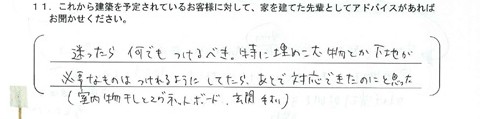 11. これから建築を予定されているお客様に対して、家を建てた先輩としてアドバイスがあれば
お聞かせください。
迷ったら 何でも つけるべき。特に 埋めこむ物とか 下地が
必要なものは つけれるように してたら、あとで 対応できたのにと思った
(室内物干しとマグネットボード、玄関手すり)